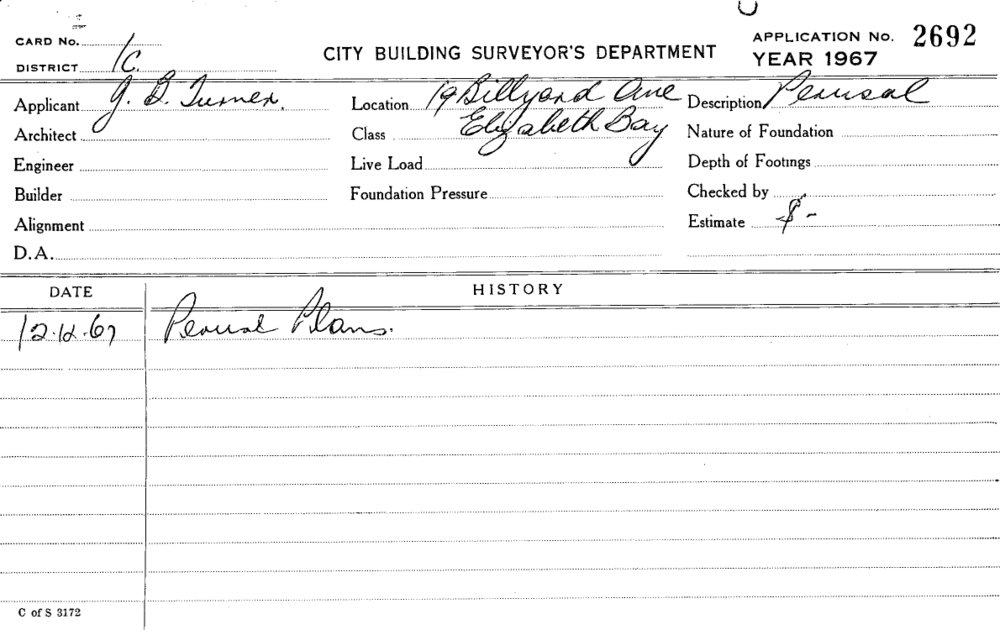 CARD No. 1 CITY BUILDING SURVEYOR'S DEPARTMENT APPLICATION No. 2692
DISTRICT 1C. YEAR 1967
Applicant G. B. Turner. Location 19 Billyard Ave Description Perusal
Architect Class Elizabeth Bay Nature of Foundation
Engineer Live Load Depth of Footings
Builder Foundation Pressure Checked by
Alignment Estimate $ -
D.A.
DATE HISTORY
12.12.67 Perusal Plans.
C of S 3172